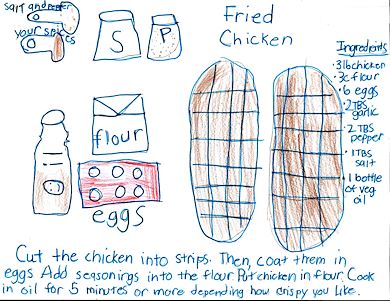 Salt and pepper
your spices
S P
flour
eggs
Fried
Chicken
Ingredients
• 3 lb chicken
• 3c flour
• 6 eggs
• 2 TBS
garlic
• 2 TBS
pepper
• 1 TBS
salt
• 1 bottle
of veg
oil
Cut the chicken into strips. Then, coat them in
eggs Add seasonings into the flour. Put chicken in flour. Cook
in oil for 5 minutes or more depending how crispy you like.